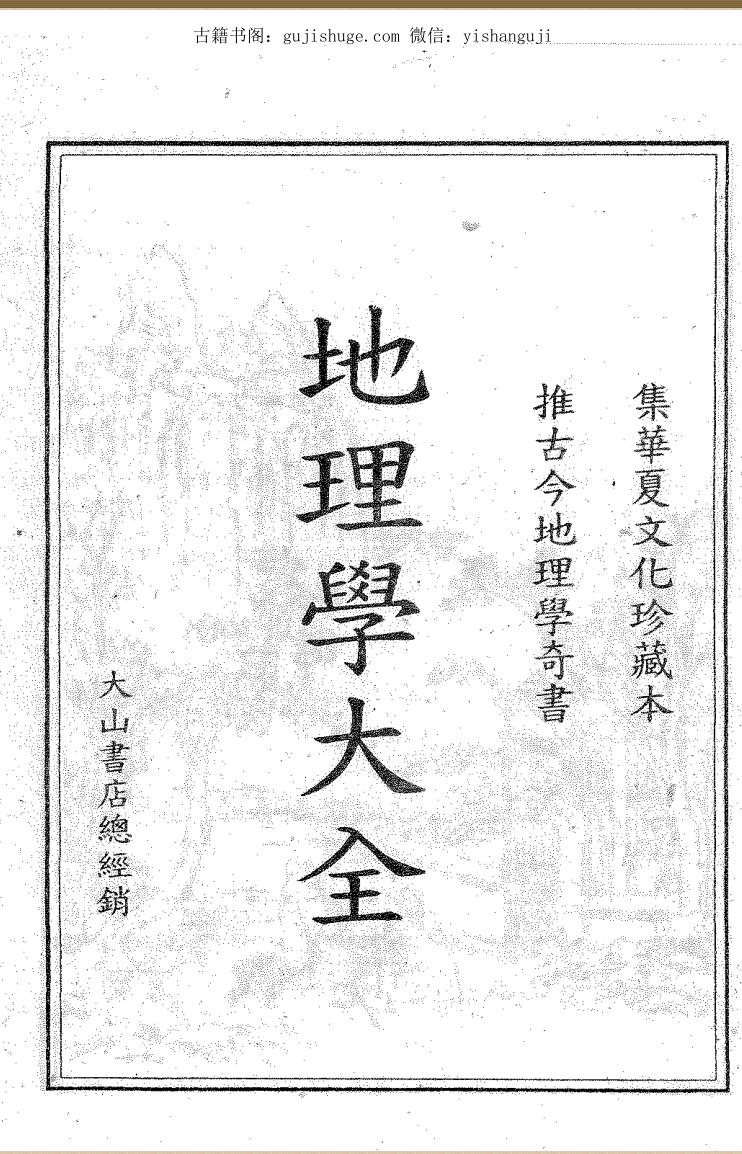 古籍书阁：gujishuge.com 微信：yishanguji
集華夏文化珍藏本
推古今地理學奇書
地理學大全
大山書店總經銷